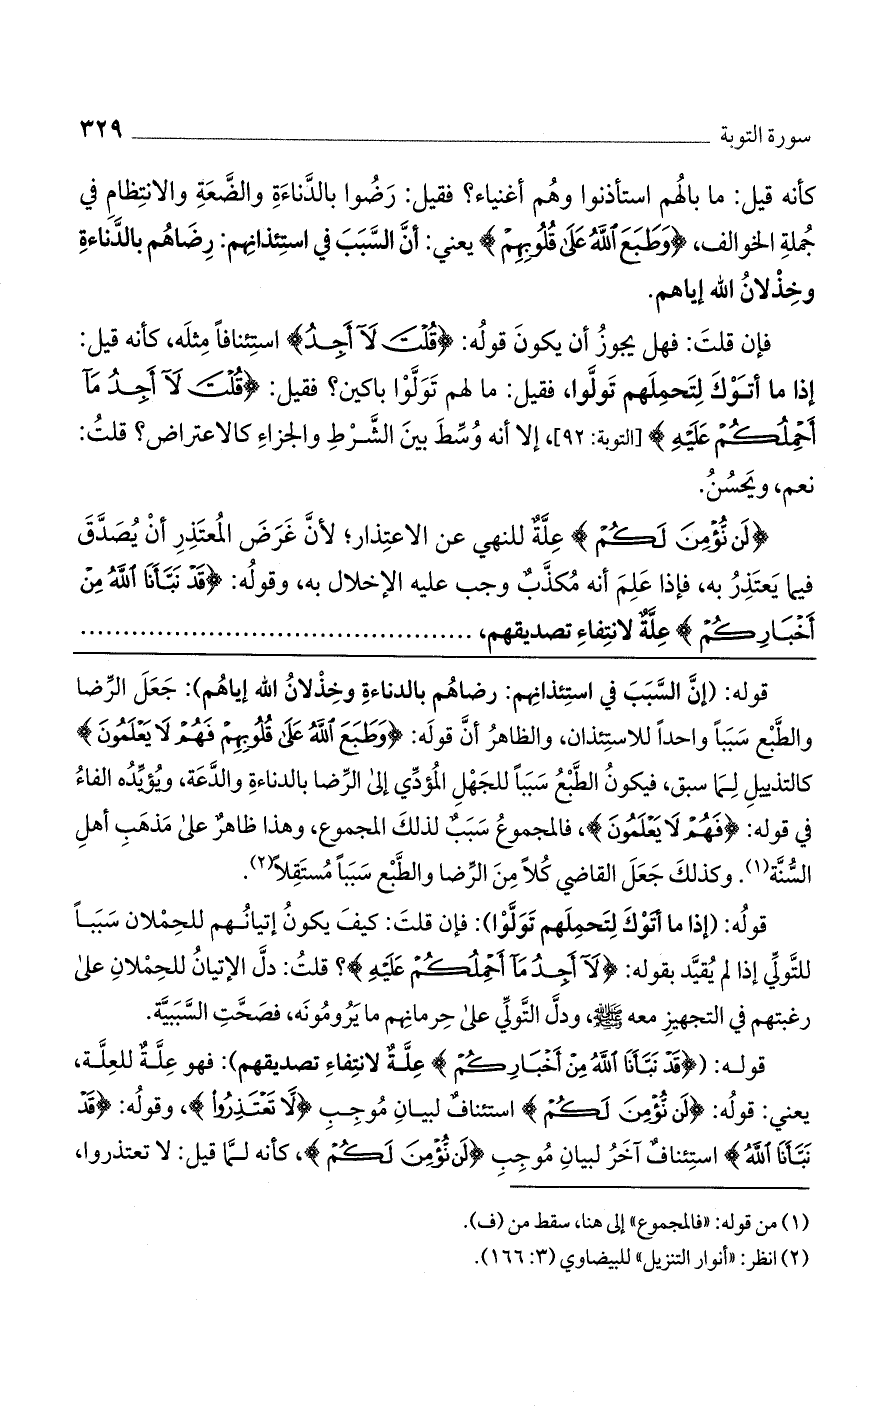 سورة التوبة ٣٢٩
كأنه قيل: ما بالُهم استأذنوا وهُم أغنياء؟ فقيل: رَضُوا بالدَّناءَةِ والضَّعَةِ والانتِظامِ في
جُملةِ الخوالف، ﴿وَطَبَعَ ٱللَّهُ عَلَىٰ قُلُوبِهِمْ﴾ يعني: أنَّ السَّبَبَ في استِئذانِهم: رِضَاهُم بالدَّناءةِ
وخِذْلانُ الله إياهم.
فإن قلتَ: فهل يجوزُ أن يكونَ قولُه: ﴿قُلْتَ لَآ أَجِدُ﴾ استِئنافاً مِثلَه، كأنه قيل:
إذا ما أتَوْكَ لِتَحمِلَهم تَولَّوا، فقيل: ما لهم تَوَلَّوْا باكين؟ فقيل: ﴿قُلْتَ لَآ أَجِدُ مَآ
أَحْمِلُكُمْ عَلَيْهِ﴾ [التوبة: ٩٢]، إلا أنه وُسِّطَ بينَ الشَّرْطِ والجزاءِ كالاعتراض؟ قلتُ:
نعم، ويَحسُنُ.
﴿لَن نُّؤْمِنَ لَكُمْ﴾ عِلَّةٌ للنهي عن الاعتِذار؛ لأنَّ غَرَضَ المُعتَذِرِ أنْ يُصَدَّقَ
فيما يَعتَذِرُ به، فإذا عَلِمَ أنه مُكذَّبٌ وجب عليه الإخلال به، وقولُه: ﴿قَدْ نَبَّأَنَا ٱللَّهُ مِنْ
أَخْبَارِكُمْ﴾ عِلَّةٌ لانتِفاءِ تصديقهم، ............................................
قوله: (إنَّ السَّبَبَ في استِئذانِهم: رضاهُم بالدناءةِ وخِذْلانُ الله إياهُم): جَعَلَ الرِّضا
والطَّبْع سَبَباً واحداً للاستِئذان، والظاهرُ أنَّ قولَه: ﴿وَطَبَعَ ٱللَّهُ عَلَىٰ قُلُوبِهِمْ فَهُمْ لَا يَعْلَمُونَ﴾
كالتذييلِ لِـمَا سبق، فيكونُ الطَّبْعُ سَبَباً للجَهْلِ المُؤدِّي إلى الرِّضا بالدناءةِ والدَّعَة، ويُؤيِّدُه الفاءُ
في قوله: ﴿فَهُمْ لَا يَعْلَمُونَ﴾، فالمجموعُ سَبَبٌ لذلكَ المجموع، وهذا ظاهرٌ على مَذهَبِ أهلِ
السُّنَّة(١). وكذلكَ جَعَلَ القاضي كُلاًّ مِنَ الرِّضا والطَّبْع سَبَباً مُستَقِلاًّ(٢).
قولُه: (إذا ما أتَوْكَ لِتَحمِلَهم تَوَلَّوْا): فإن قلتَ: كيفَ يكونُ إتيانُـهم للحِمْلان سَبَبـاً
للتَّولِّي إذا لم يُقيَّد بقوله: ﴿لَآ أَجِدُ مَآ أَحْمِلُكُمْ عَلَيْهِ﴾؟ قلتُ: دلَّ الإتيانُ للحِمْلانِ على
رغبتهم في التجهيزِ معه ﷺ، ودلَّ التَّولِّي على حِرمانِهم ما يَرُومُونَه، فصَحَّتِ السَّبَبِيَّة.
قولـه: (﴿قَدْ نَبَّأَنَا ٱللَّهُ مِنْ أَخْبَارِكُمْ﴾ عِلَّـةٌ لانتِفاءِ تصديقهم): فهو عِلَّـةٌ للعِلَّـة،
يعني: قولُه: ﴿لَن نُّؤْمِنَ لَكُمْ﴾ استئنافٌ لبيـانِ مُوجِـبِ ﴿لَّا تَعْتَذِرُوا۟﴾، وقولُه: ﴿قَدْ
نَبَّأَنَا ٱللَّهُ﴾ استِئنافٌ آخَرُ لبيانِ مُوجِبِ ﴿لَن نُّؤْمِنَ لَكُمْ﴾، كأنه لـمَّا قيل: لا تعتذروا،
(١) من قوله: «فالمجموع» إلى هنا، سقط من (ف).
(٢) انظر: «أنوار التنزيل» للبيضاوي (٣: ١٦٦).